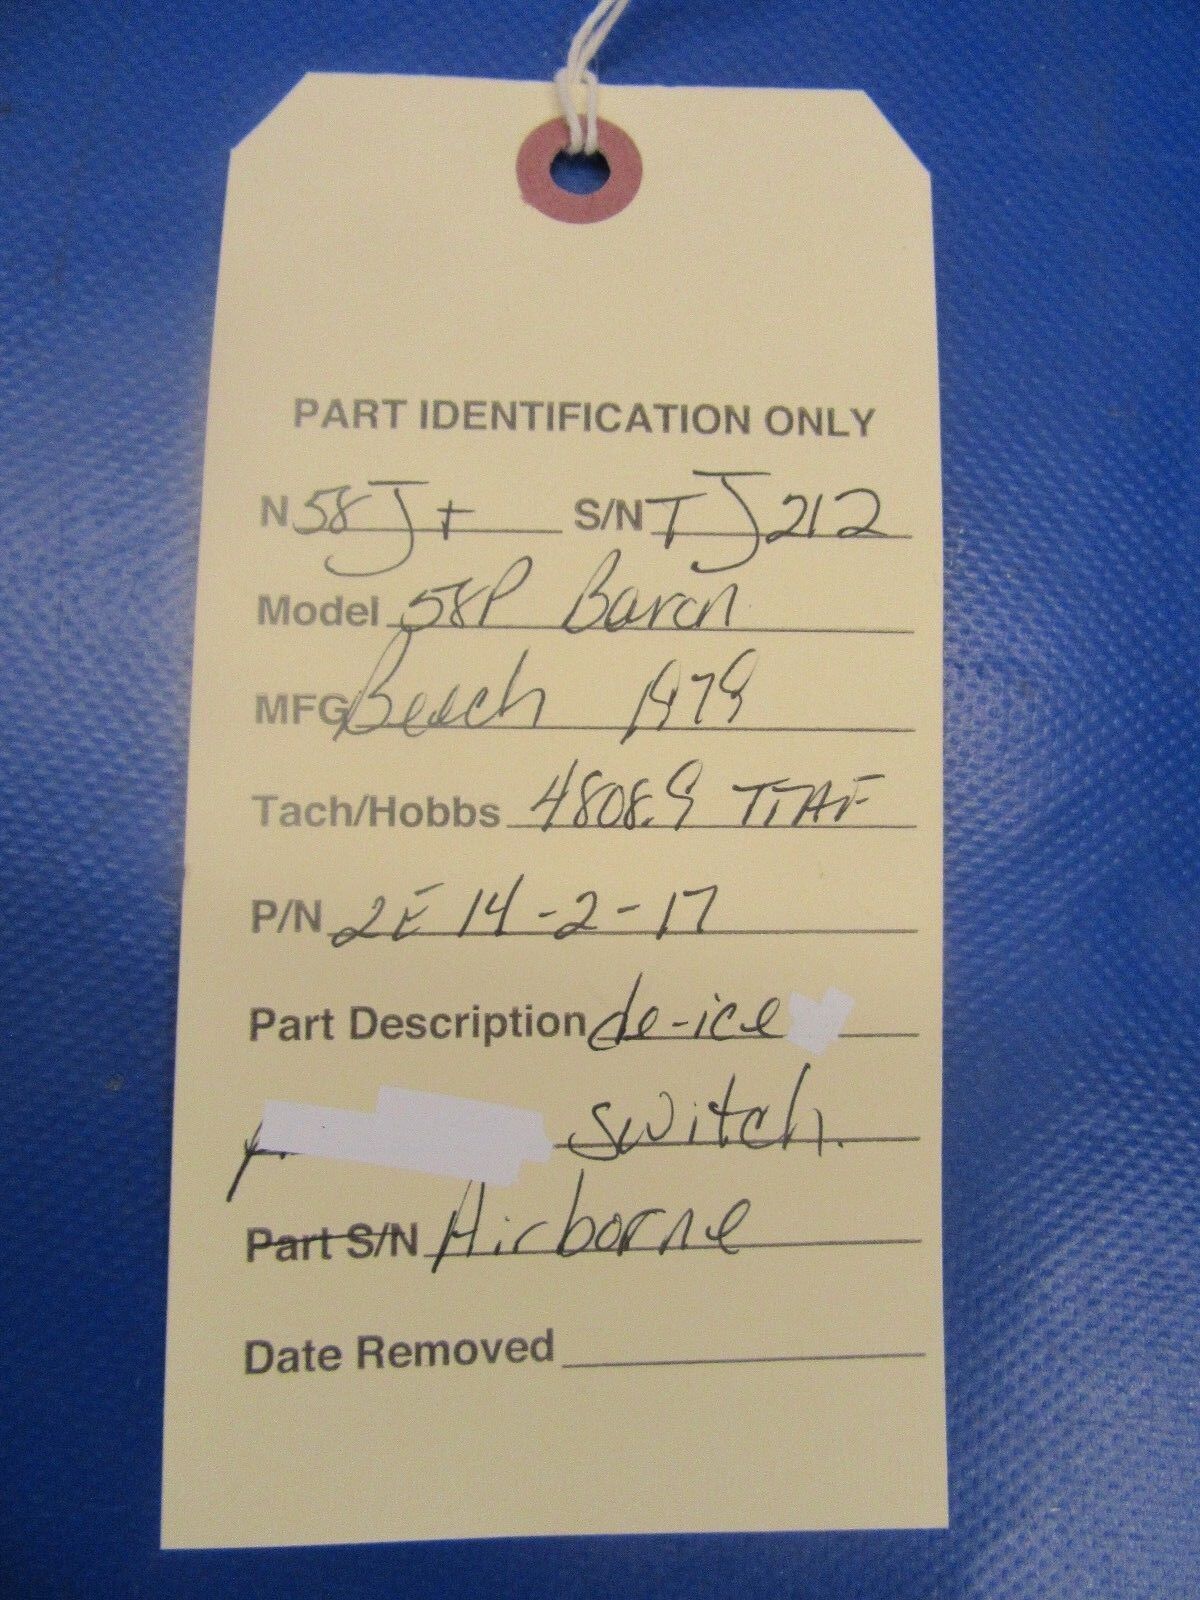 PART IDENTIFICATION ONLY
N 58J+ S/N TJ212
Model 58P Baron
MFG Beech 1979
Tach/Hobbs 4808.9 TTAF
P/N 2E14-2-17
Part Description de-ice
switch.
Part S/N Airborne
Date Removed